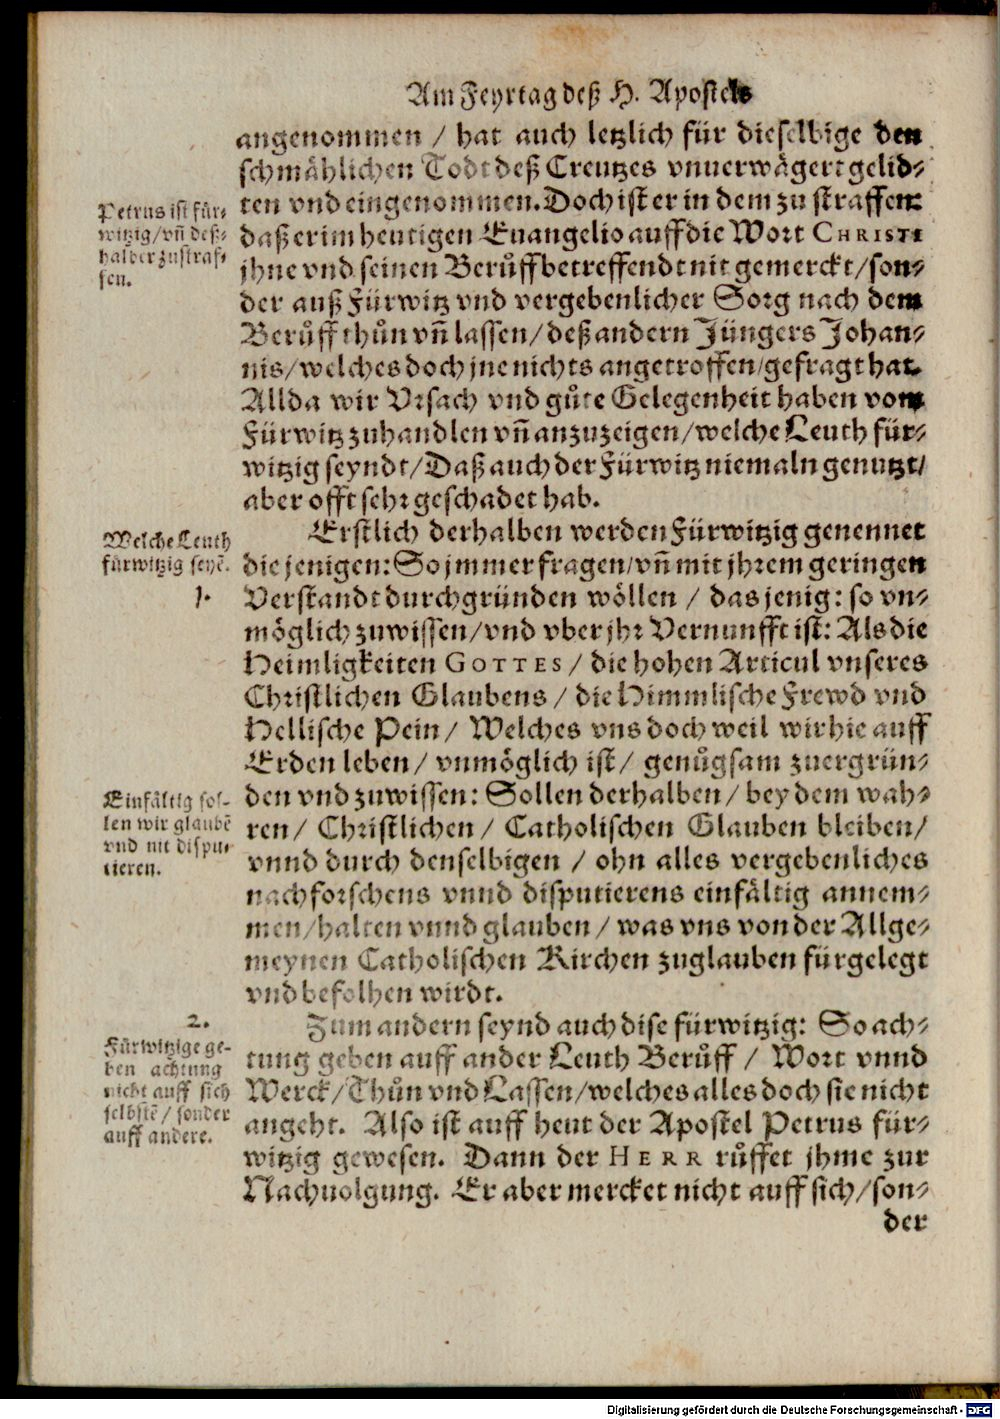 Am Feyrtag deß H. Apostels
angenommen / hat auch letzlich für dieselbige den
schmählichen Todt deß Creutzes vnuerwägert gelid-
ten vnd eingenommen. Doch ist er in dem zu straffen:
daß er im heutigen Euangelio auff die Wort CHRISTI
jhne vnd seinen Berůff betreffendt nit gemerckt / son-
der auß Fürwitz vnd vergebenlicher Sorg nach dem
Berůff thůn vñ lassen / deß andern Jüngers Johan-
nis / welches doch jne nichts angetroffen / gefragt hat.
Allda wir Vrsach vnd gůte Gelegenheit haben vom
Fürwitz zuhandlen vñ anzuzeigen / welche Leuth für-
witzig seyndt / Daß auch der Fürwitz niemaln genutzt /
aber offt sehr geschadet hab.
Erstlich derhalben werden Fürwitzig genennet
die jenigen: So jmmer fragen / vñ mit jhrem geringen
Verstandt durchgründen wöllen / das jenig: so vn-
möglich zuwissen / vnd vber jhr Vernunfft ist: Als die
Heimligkeiten GOTTES / die hohen Articul vnseres
Christlichen Glaubens / die Himmlische Frewd vnd
Hellische Pein / Welches vns doch weil wir hie auff
Erden leben / vnmöglich ist / genůgsam zuergrün-
den vnd zuwissen: Sollen derhalben / bey dem wah-
ren / Christlichen / Catholischen Glauben bleiben /
vnnd durch denselbigen / ohn alles vergebenliches
nachforschens vnnd disputierens einfältig annem-
men / halten vnnd glauben / was vns von der Allge-
meynen Catholischen Kirchen zuglauben fürgelegt
vnd befolhen wirdt.
Zum andern seynd auch dise fürwitzig: So ach-
tung geben auff ander Leuth Berůff / Wort vnnd
Werck / Thůn vnd Lassen / welches alles doch sie nicht
angeht. Also ist auff heut der Apostel Petrus für-
witzig gewesen. Dann der HERR růffet jhme zur
Nachuolgung. Er aber mercket nicht auff sich / son-
der
Petrus ist für-
witzig / vñ deß-
halber zustraf-
fen.
Welche Leuth
fürwitzig seyẽ.
1.
Einfältig sol-
len wir glaubẽ
vnd nit dispu-
tieren.
2.
Fürwitzige ge-
ben achtung
nicht auff sich
selbstẽ / sonder
auff andere.
Digitalisierung gefördert durch die Deutsche Forschungsgemeinschaft - DFG